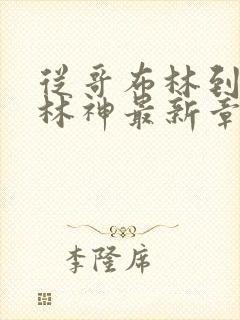 從哥布林到
林神最新章
李隆席